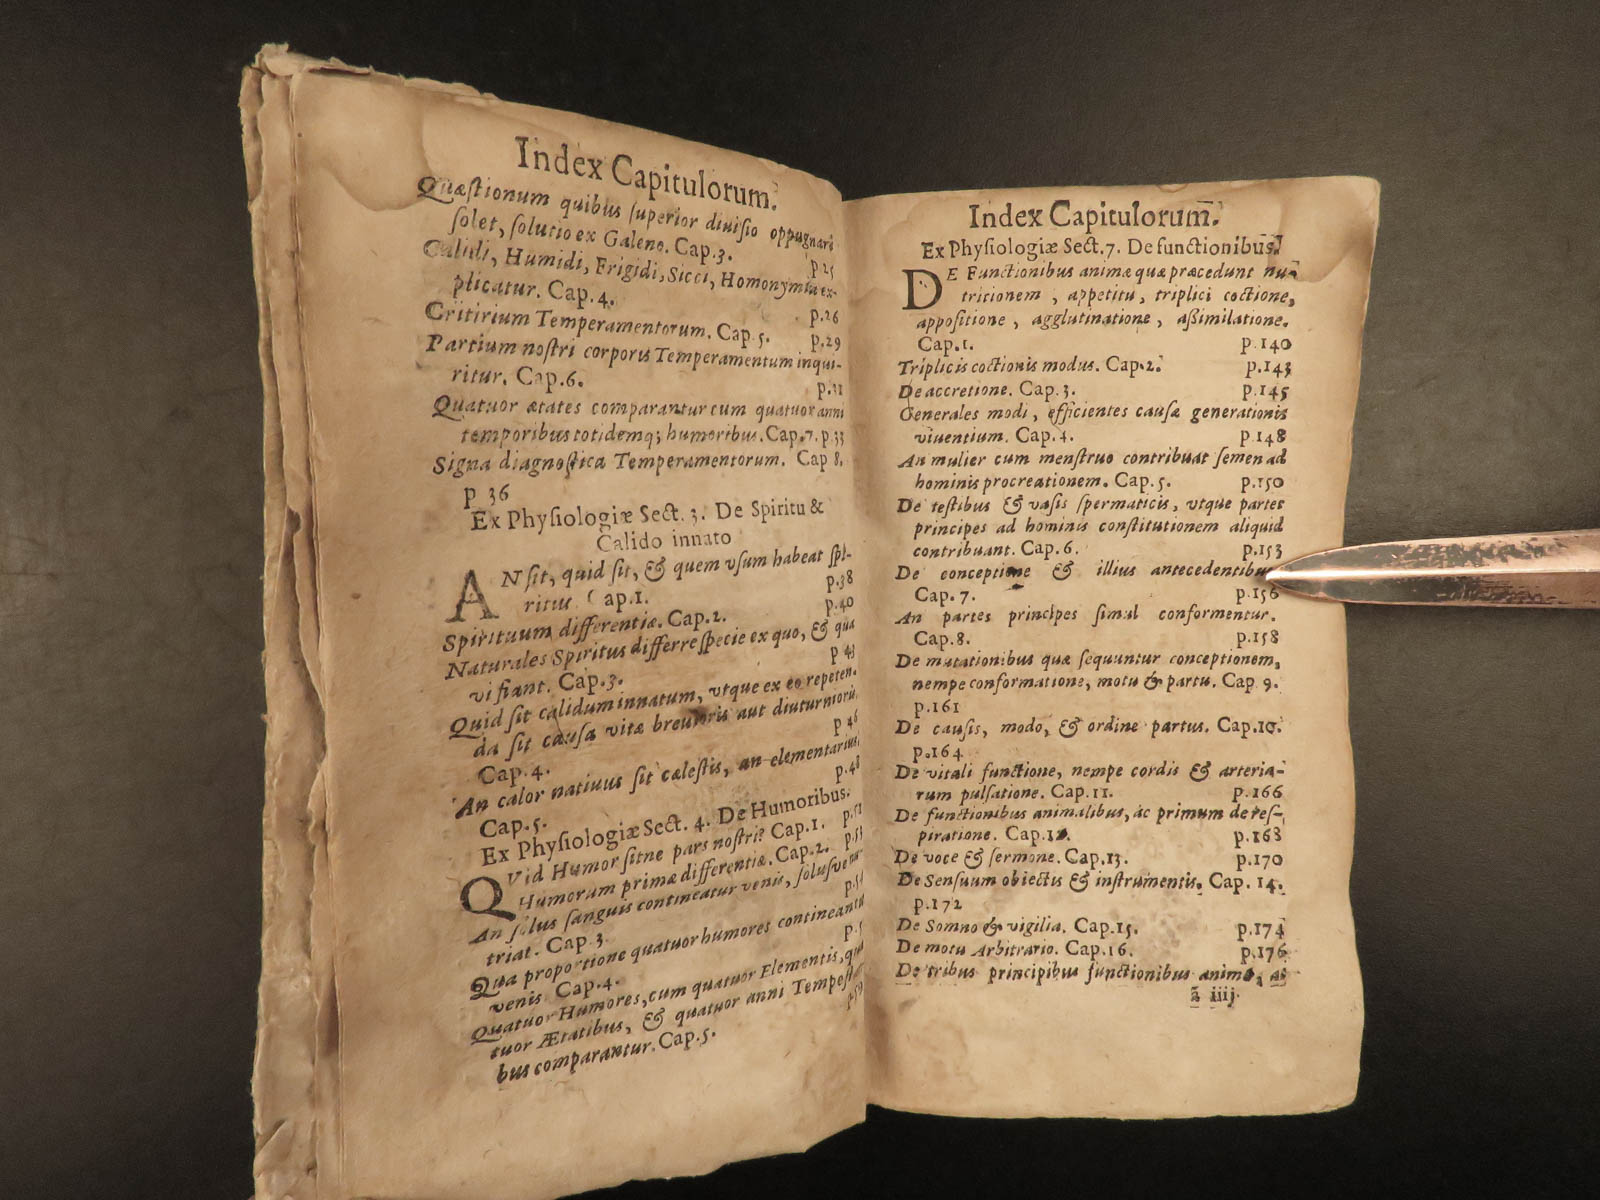 Index Capitulorum.
Quæſtionum quibus ſuperior diuiſio oppugnari
ſolet, ſolutio ex Galeno. Cap.3.
p.25
Calidi, Humidi, Frigidi, Sicci, Homonymia ex-
plicatur. Cap.4.
p.26
Critirium Temperamentorum. Cap.5. p.29
Partium noſtri corporis Temperamentum inqui-
ritur. Cap.6.
Quatuor ætates comparantur cum quatuor anni
temporibus totidemq; humoribus. Cap.7. p.33
Signa diagnoſtica Temperamentorum. Cap 8.
p 36
Ex Phyſiologiæ Sect. 3. De Spiritu &
Calido innato
AN ſit, quid ſit, & quem vſum habeat ſpi-
ritus Cap.1. p.38
Spirituum differentiæ. Cap.2. p.40
Naturales Spiritus differre ſpecie ex quo, & qua
vi fiant. Cap.3. p 43
Quid ſit calidum innatum, vtque ex eo repeten-
da ſit cauſa vitæ breuioris aut diuturnioris
Cap.4. p 46
An calor natiuus ſit cæleſtis, an elementarius
Cap.5. p.48
Ex Phyſiologiæ Sect. 4. De Humoribus.
QVid Humor ſitne pars noſtri? Cap.1.
Humorum primæ differentiæ. Cap.2. p.53
An ſolus ſanguis contineatur venis, ſoluſve
triat. Cap 3.
Qua proportione quatuor humores contineantur
venis Cap.4.
Quatuor Humores, cum quatuor Elementis,
tuor Ætatibus, & quatuor anni
bus comparantur. Cap.5.
Index Capitulorum.
Ex Phyſiologiæ Sect.7. De functionibus.
DE Functionibus animæ quæ præcedunt nu-
tritionem, appetitu, triplici coctione,
appoſitione, agglutinatione, aßimilatione.
Cap.1. p.140
Triplicis coctionis modus. Cap.2. p.143
De accretione. Cap.3. p.145
Generales modi, efficientes cauſæ generationis
viuentium. Cap.4. p.148
An mulier cum menſtruo contribuat ſemen ad
hominis procreationem. Cap.5. p.150
De teſtibus & vaſis ſpermaticis, vtque partes
principes ad hominis conſtitutionem aliquid
contribuant. Cap.6. p.153
De conceptione & illius antecedentibus
Cap.7. p.156
An partes principes ſimul conformentur.
Cap.8. p.158
De mutationibus quæ ſequuntur conceptionem,
nempe conformatione, motu & partu. Cap 9.
p.161
De cauſis, modo, & ordine partus. Cap.10.
p.164
De vitali functione, nempe cordis & arteria-
rum pulſatione. Cap.11. p.166
De functionibus animalibus, ac primum de reſ-
piratione. Cap.12. p.168
De voce & ſermone. Cap.13. p.170
De Senſuum obiectis & inſtrumentis. Cap. 14.
p.172
De Somno & vigilia. Cap.15. p.174
De motu Arbitrario. Cap.16. p.176
De tribus principibus functionibus animæ, ac
ã iiij